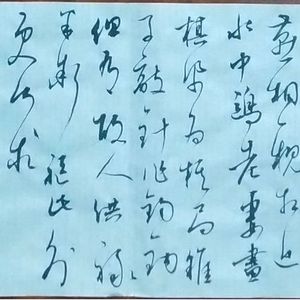 燕相親相近
水中鷗老妻畫
為棋局稚
子敲針作釣鉤
但有故人供祿
米微軀此外
更何求